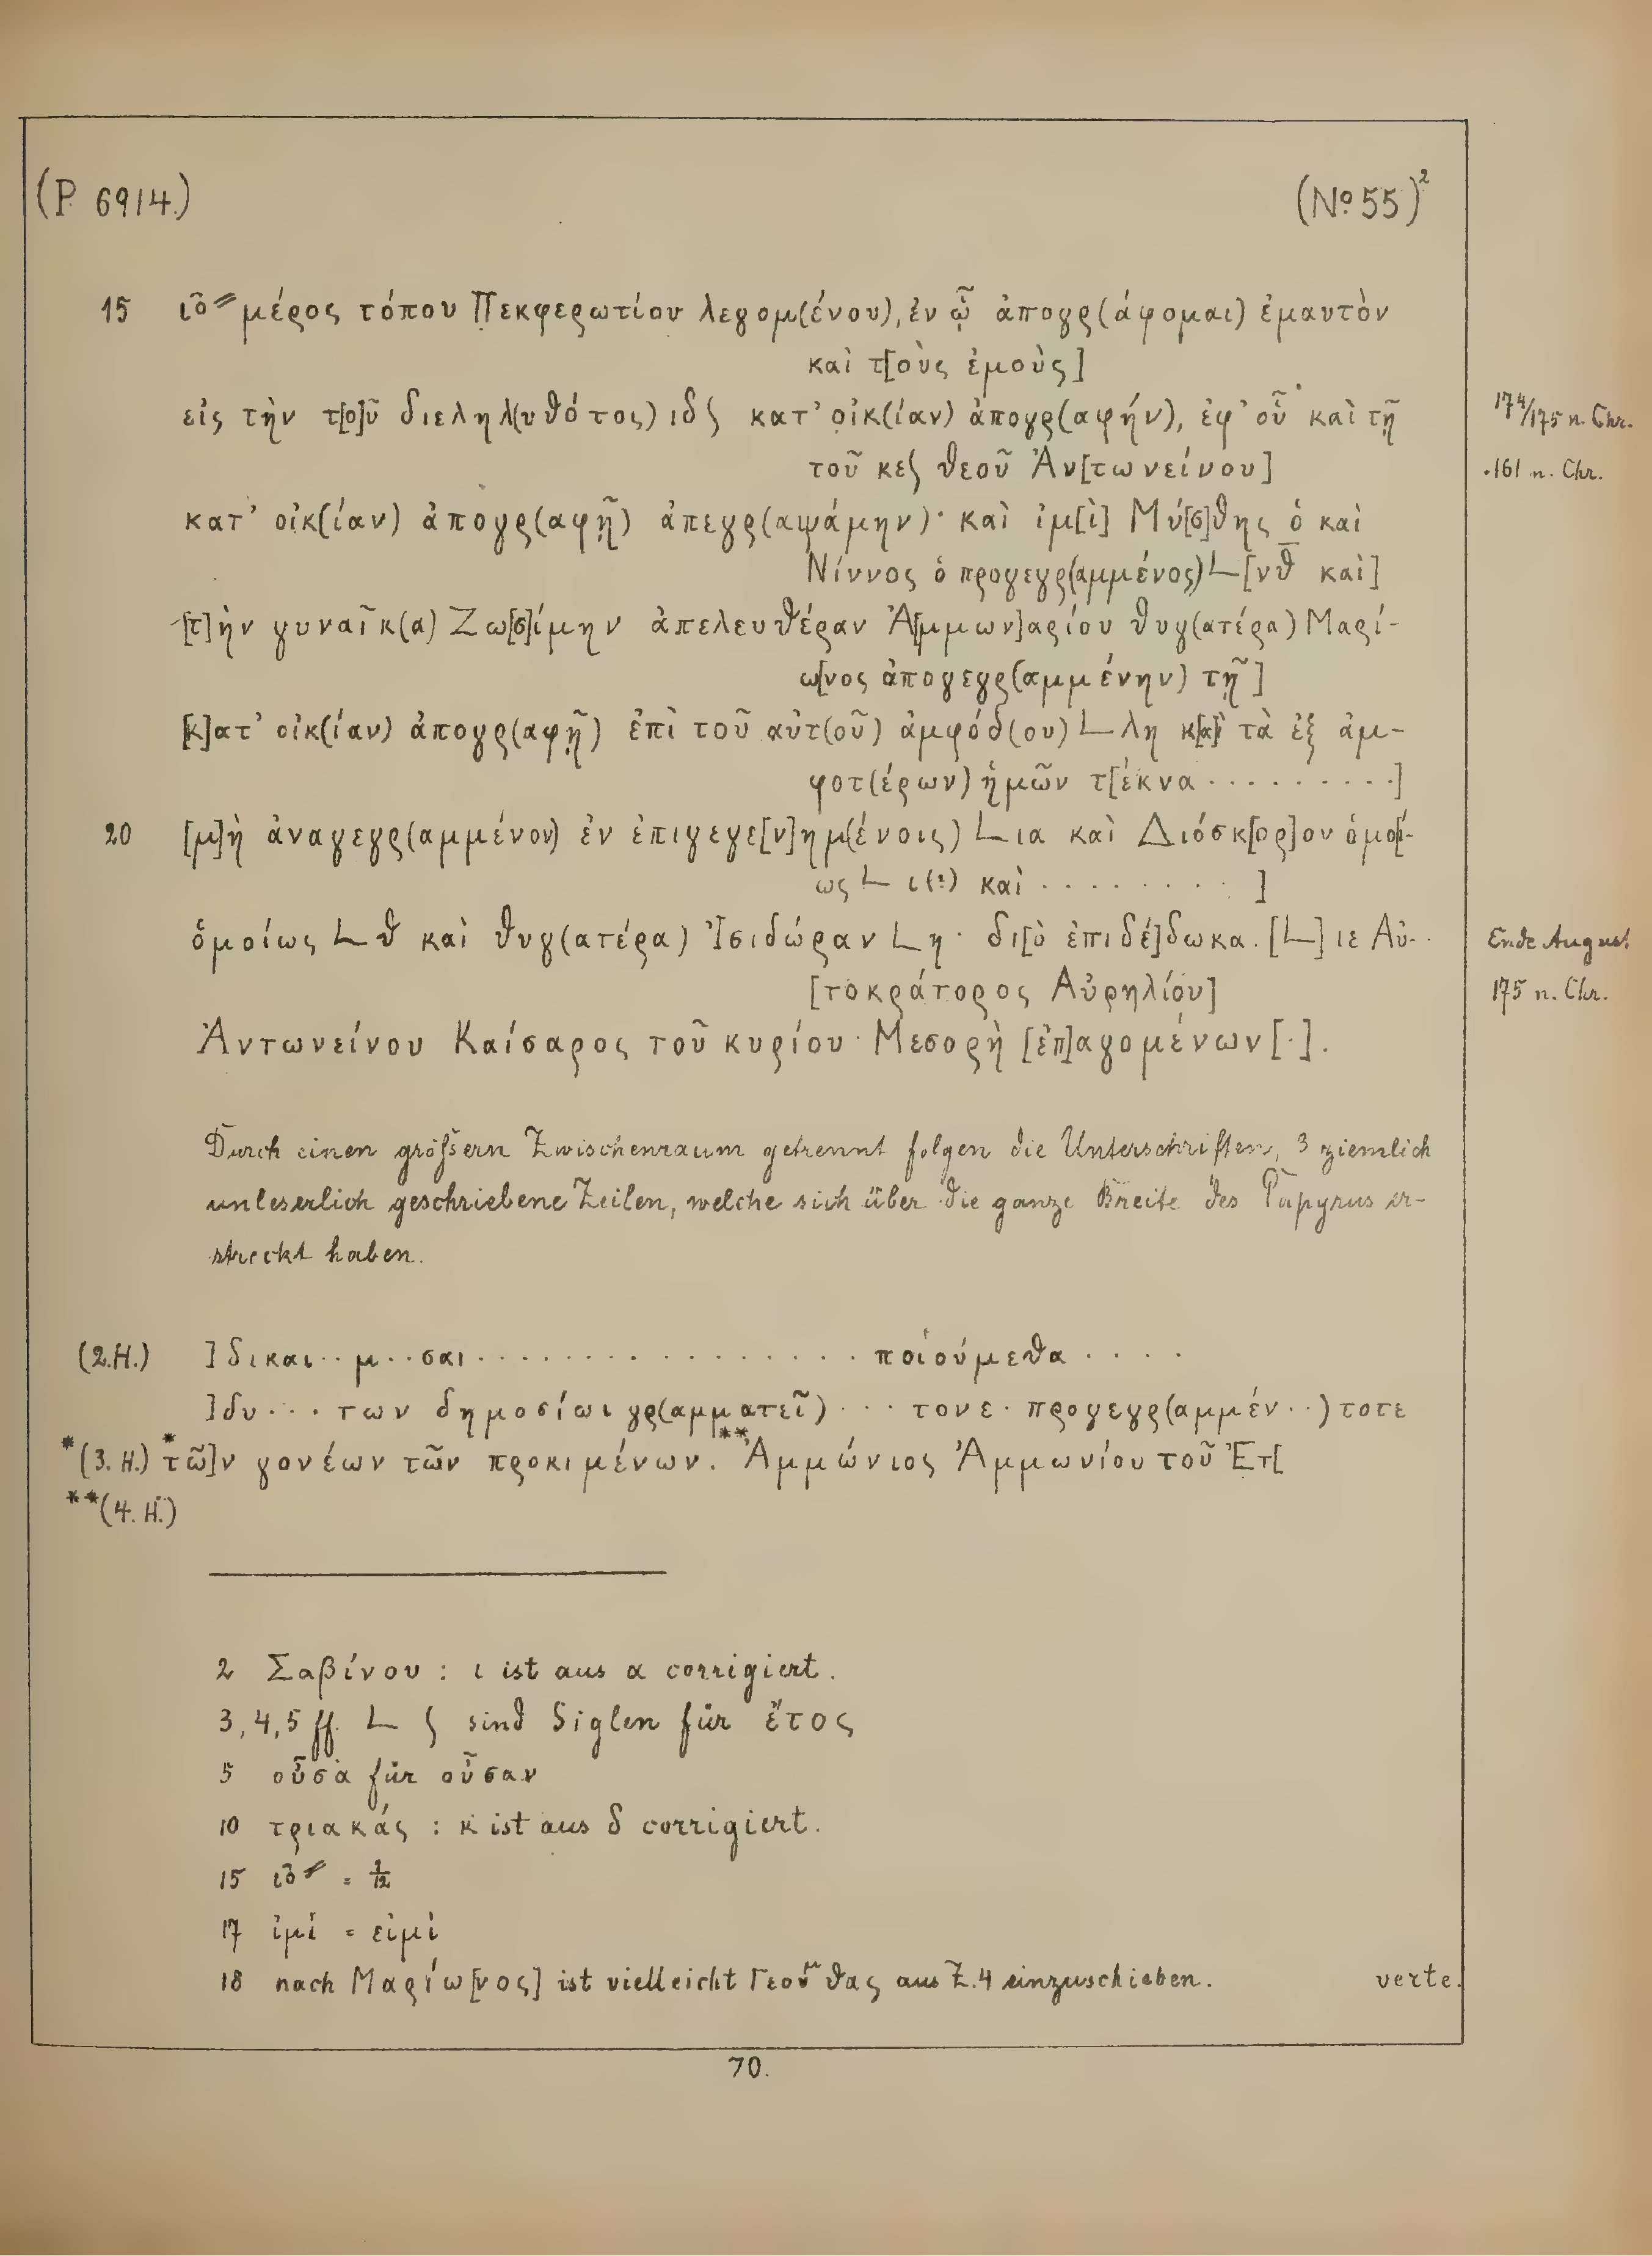 (P. 6914.) (No 55)²
15 ιδ̄⸗ μέρος τόπου Πεκφερωτίου λεγομ(ένου), ἐν ᾧ ἀπογρ(άφομαι) ἐμαυτὸν
καὶ τ[οὺς ἐμοὺς]
εἰς τὴν τ[ο]ῦ διεληλ(υθότος) ιδ⟆ κατ' οἰκ(ίαν) ἀπογρ(αφήν), ἐφ' οὗ καὶ τῇ 174/175 n. Chr.
τοῦ κε⟆ θεοῦ Ἀν[τωνείνου] 161 n. Chr.
κατ' οἰκ(ίαν) ἀπογρ(αφῇ) ἀπεγρ(αψάμην)· καὶ ἰμ[ὶ] Μύ[σ]θης ὁ καὶ
Νίννος ὁ προγεγρ(αμμένος) L [νθ̄ καὶ]
[τ]ὴν γυναῖκ(α) Ζω[σ]ίμην ἀπελευθέραν Ἀ[μμων]αρίου θυγ(ατέρα) Μαρί-
ω[νος ἀπογεγρ(αμμένην) τῇ]
[κ]ατ' οἰκ(ίαν) ἀπογρ(αφῇ) ἐπὶ τοῦ αὐτ(οῦ) ἀμφόδ(ου) L λη κ[α]ὶ τὰ ἐξ ἀμ-
φοτ(έρων) ἡμῶν τ[έκνα ·········]
20 [μ]ὴ ἀναγεγρ(αμμένον) ἐν ἐπιγεγε[ν]ημ(ένοις) L ια καὶ Διόσκ[ορ]ον ὁμο[ί-
ως L ι(?) καὶ ········]
ὁμοίως L θ καὶ θυγ(ατέρα) Ἰσιδώραν L η· δι[ὸ ἐπιδέ]δωκα. [L] ιε Αὐ- Ende August
[τοκράτορος Αὐρηλίου] 175 n. Chr.
Ἀντωνείνου Καίσαρος τοῦ κυρίου· Μεσορὴ [ἐπ]αγομένων [·].
Durch einen größern Zwischenraum getrennt folgen die Unterschriften, 3 ziemlich
unleserlich geschriebene Zeilen, welche sich über die ganze Breite des Papyrus er-
streckt haben.
(2. H.) ] δικαι··μ··σαι················· ποιούμεθα ····
] δυ···των δημοσίωι γρ(αμματεῖ) ··· τονε· προγεγρ(αμμέν··) τοτε
*(3. H.) *τῶ]ν γονέων τῶν προκιμένων. **Ἀμμώνιος Ἀμμωνίου τοῦ Ἑτ[
**(4. H.)
2 Σαβίνου : ι ist aus α corrigiert.
3, 4, 5 ff. L ⟆ sind Siglen für ἔτος
5 οὖσα für οὖσαν
10 τριακάς : κ ist aus δ corrigiert.
15 ιδ̄⸗ = 1/12
17 ἰμί = εἰμὶ
18 nach Μαρίω[νος] ist vielleicht Γεουμθας aus Z. 4 einzuschieben. verte.
70.